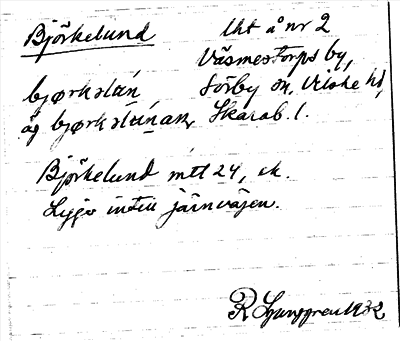 Björkelund
Uht å nr 2
Väsmestorps by,
Sörby sn, Vilske hd,
Skarab. l.
bjørkslún
åg bjørkslúnan,
Björkelund mtl 24, ek.
Ligger intill järnvägen.
R Ljunggren 1932